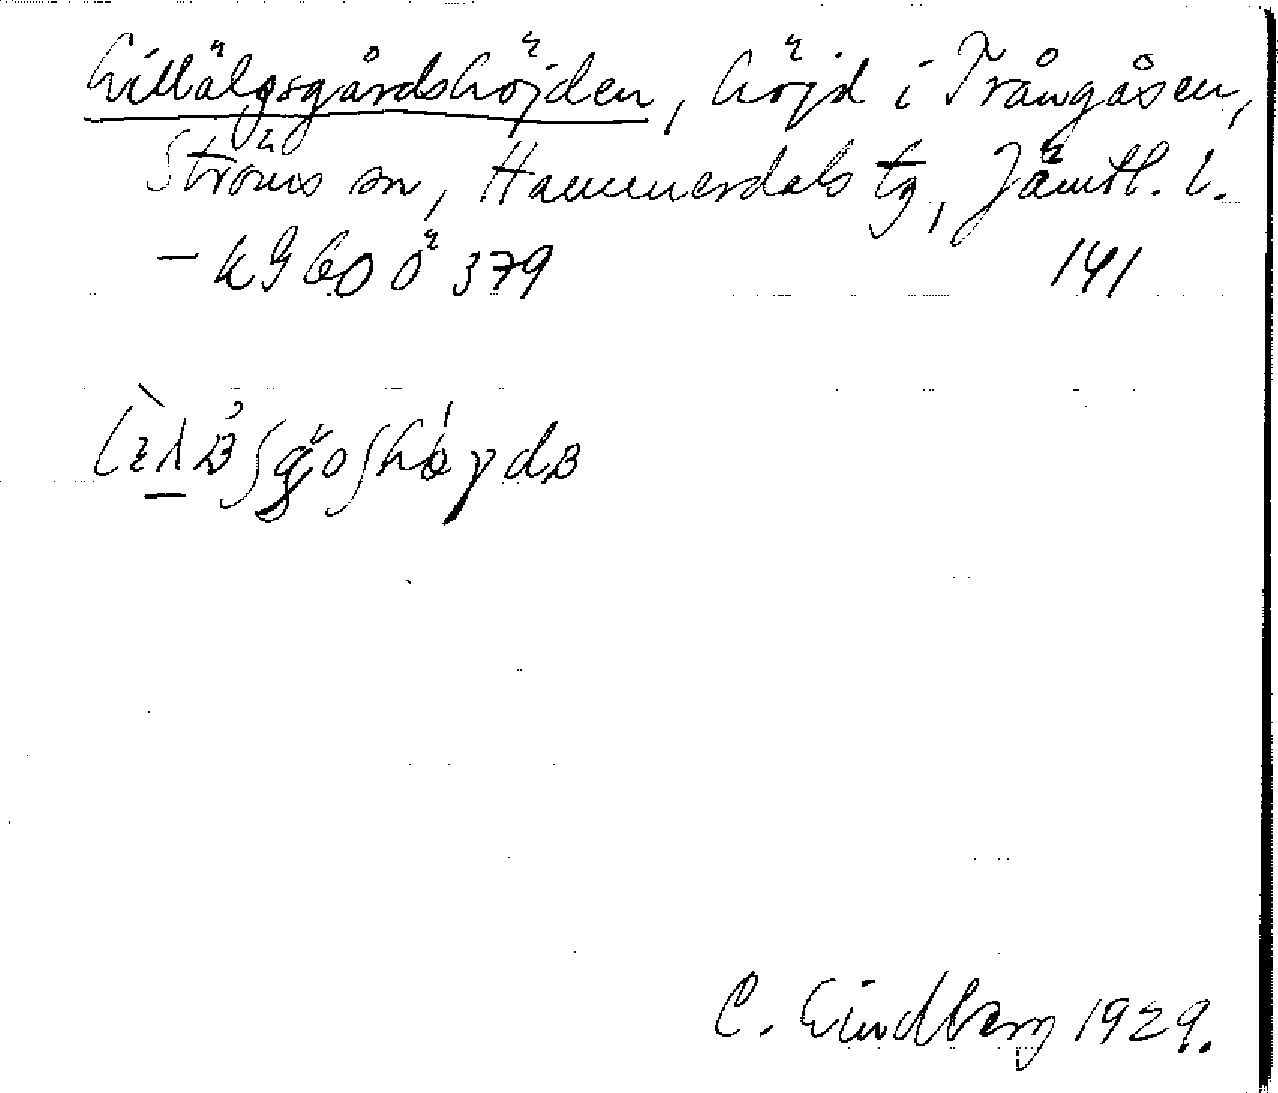 Lillälgsgårdshöjden, höjd i Trångåsen,
Ströms sn, Hammerdals tg, Jämtl. l.
141
C. Lindberg 1929.